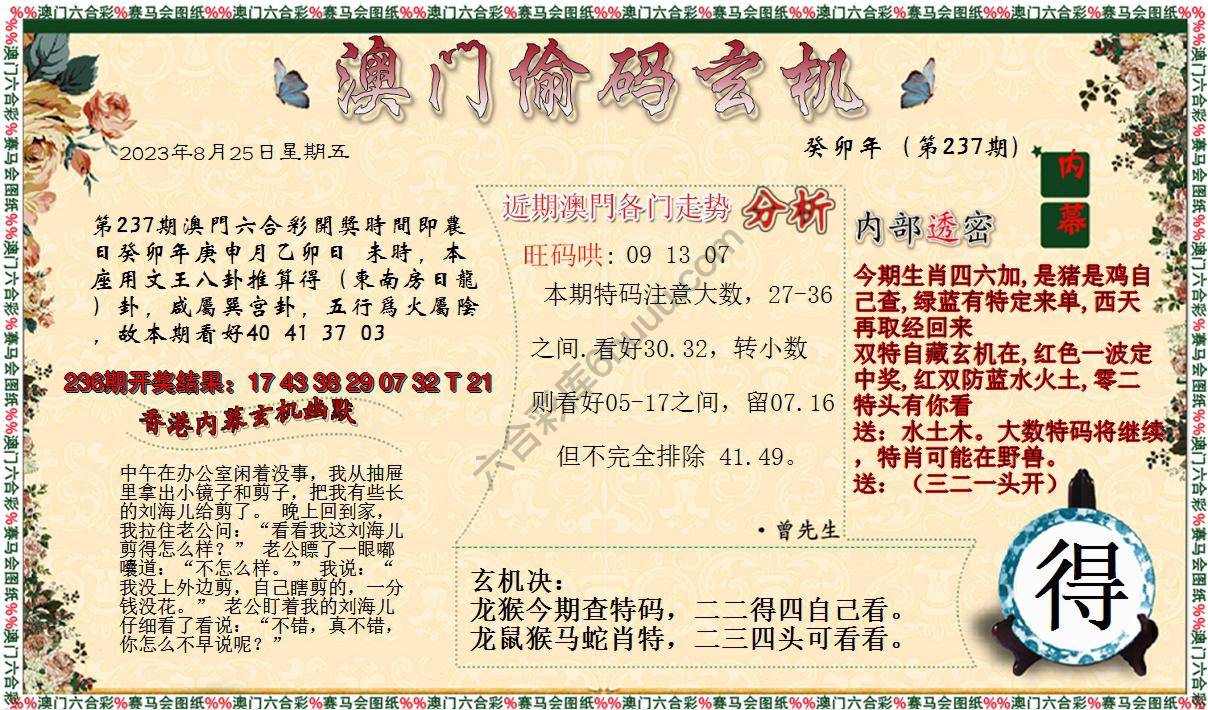 %%澳门六合彩%赛马会图纸%%澳门六合彩%赛马会图纸%%澳门六合彩%赛马会图纸%%澳门六合彩%赛马会图纸%%澳门六合彩%赛马会图纸%%澳门六合彩%赛马会图纸%%
澳门偷码玄机
2023年8月25日星期五
癸卯年（第237期）
内
幕
第237期澳門六合彩開獎時間即農
日癸卯年庚申月乙卯日 未時，本
座用文王八卦推算得（東南房日龍
）卦，咸屬巽宫卦，五行爲火屬陰
，故本期看好40 41 37 03
236期开奖结果：17 43 38 29 07 32 T 21
香港内幕玄机幽默
中午在办公室闲着没事，我从抽屉
里拿出小镜子和剪子，把我有些长
的刘海儿给剪了。 晚上回到家，
我拉住老公问：“看看我这刘海儿
剪得怎么样？” 老公瞟了一眼嘟
囔道：“不怎么样。” 我说：“
我没上外边剪，自己瞎剪的，一分
钱没花。” 老公盯着我的刘海儿
仔细看了看说：“不错，真不错，
你怎么不早说呢？”
近期澳門各门走势 分析
旺码哄: 09 13 07
本期特码注意大数，27-36
之间.看好30.32，转小数
则看好05-17之间，留07.16
但不完全排除 41.49。
·曾先生
内部透密
今期生肖四六加,是猪是鸡自
己查,绿蓝有特定来单,西天
再取经回来
双特自藏玄机在,红色一波定
中奖,红双防蓝水火土,零二
特头有你看
送：水土木。大数特码将继续
，特肖可能在野兽。
送：（三二一头开）
玄机决：
龙猴今期查特码，二二得四自己看。
龙鼠猴马蛇肖特，二三四头可看看。
得
%%澳门六合彩%赛马会图纸%%澳门六合彩%赛马会图纸%%澳门六合彩%赛马会图纸%%澳门六合彩%赛马会图纸%%澳门六合彩%赛马会图纸%%澳门六合彩%赛马会图纸%%